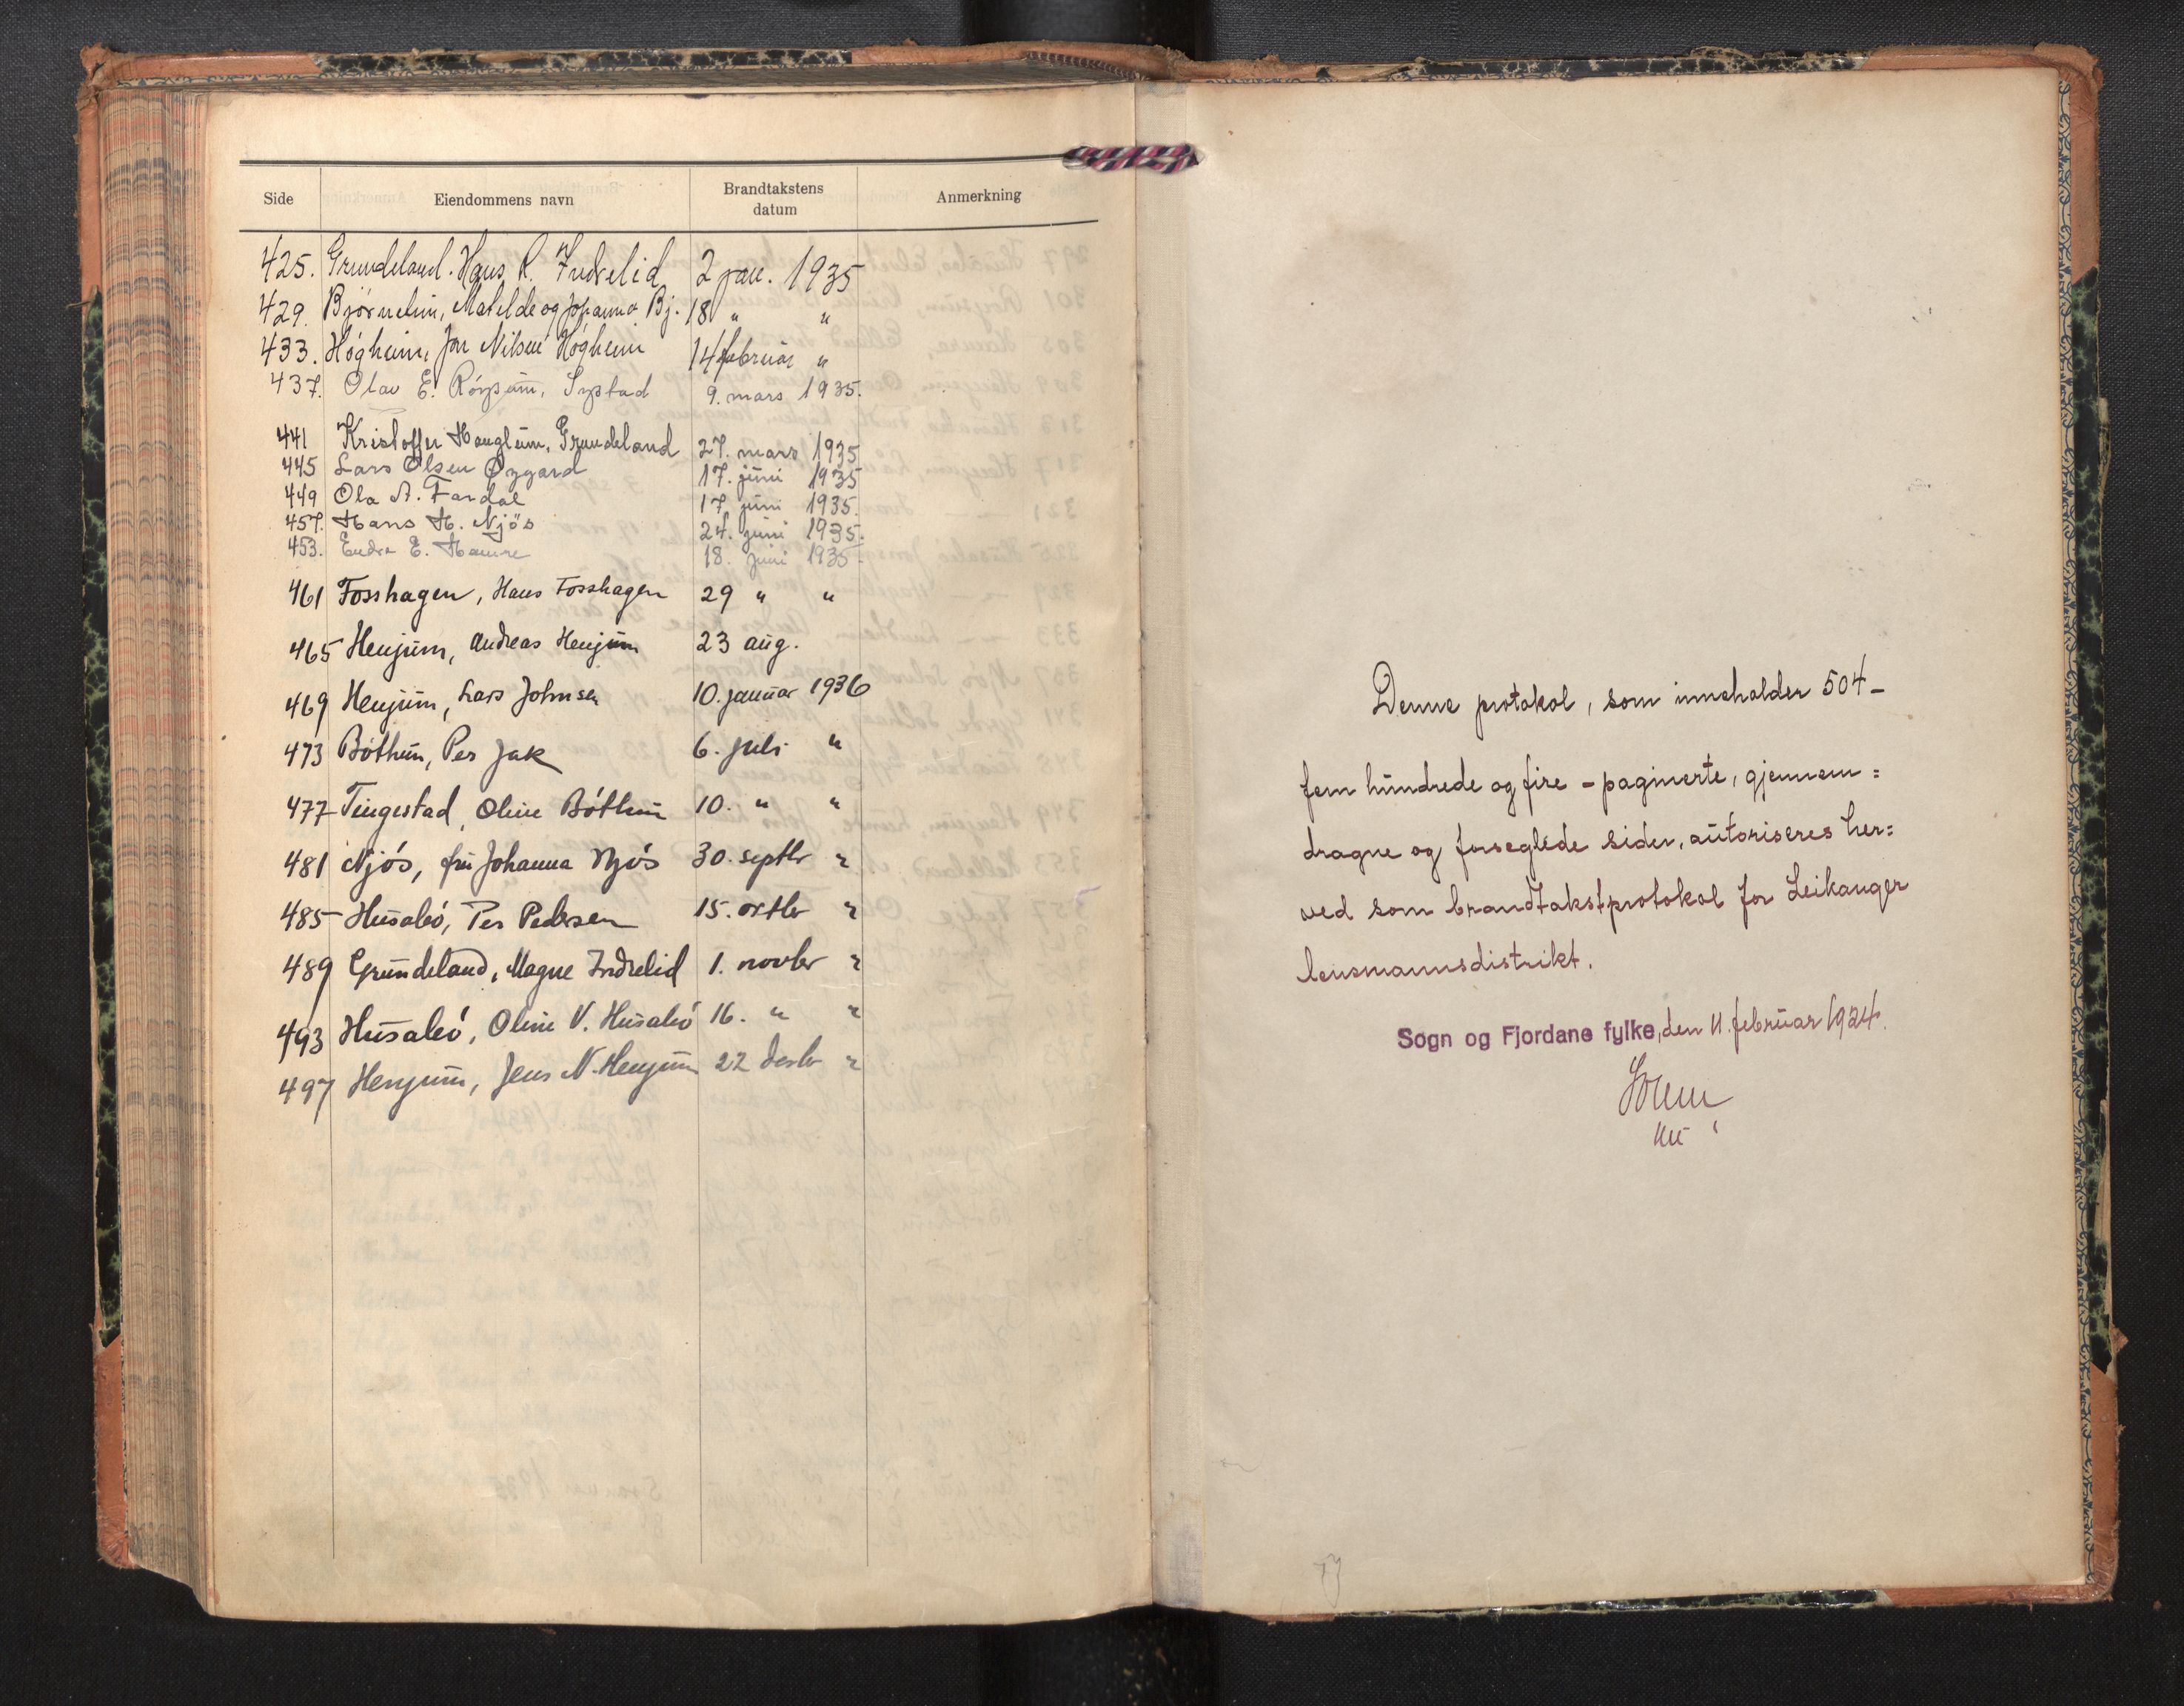 Side Eiendommens navn Brandtakstens datum Anmerkning
425. Grundeland. Hans R. Indrelid 2 jan. 1935
429. Bjørnetun, Matelde og Johanna Bj. 18 " "
433. Høgheim, Jon Nilsen Høgheim 14 februar "
437. Olav E. Røysum, Systad 9. mars 1935.
441 Kristoffer Hauglum, Grundeland 27. mars 1935
445 Lars Olsen Øygard 17. juni 1935
449 Ola A. Fardal 17 juni 1935.
457. Hans H. Njøs 24. juni 1935.
453. Endre E. Hamre 18. juni 1935.
461 Fosshagen, Hans Fosshagen 29 " "
465 Henjum, Andreas Henjum 23 aug.
469 Henjum, Lars Johnsen 10. januar 1936
473 Bóthun, Per Jak 6. juli "
477 Tingestad, Oline Bóthun 10. " "
481 Njós, fru Johanna Njós 30. septbr "
485 Husabó, Per Pedersen 15. octbr "
489 Grundeland, Magne Indrelid 1. novbr "
493 Husabó, Oline V. Husabó 16. " "
497 Henjum, Jens N. Henjum 22 desbr "
Denne protokol, som inneholder 504 -
fem hundrede og fire - paginerte, gjennem=
dragne og forseglede sider, autoriseres her=
ved som brandtakstprotokol for Leikanger
lensmannsdistrikt.
Sogn og Fjordane fylke, den 11. februar 1924.